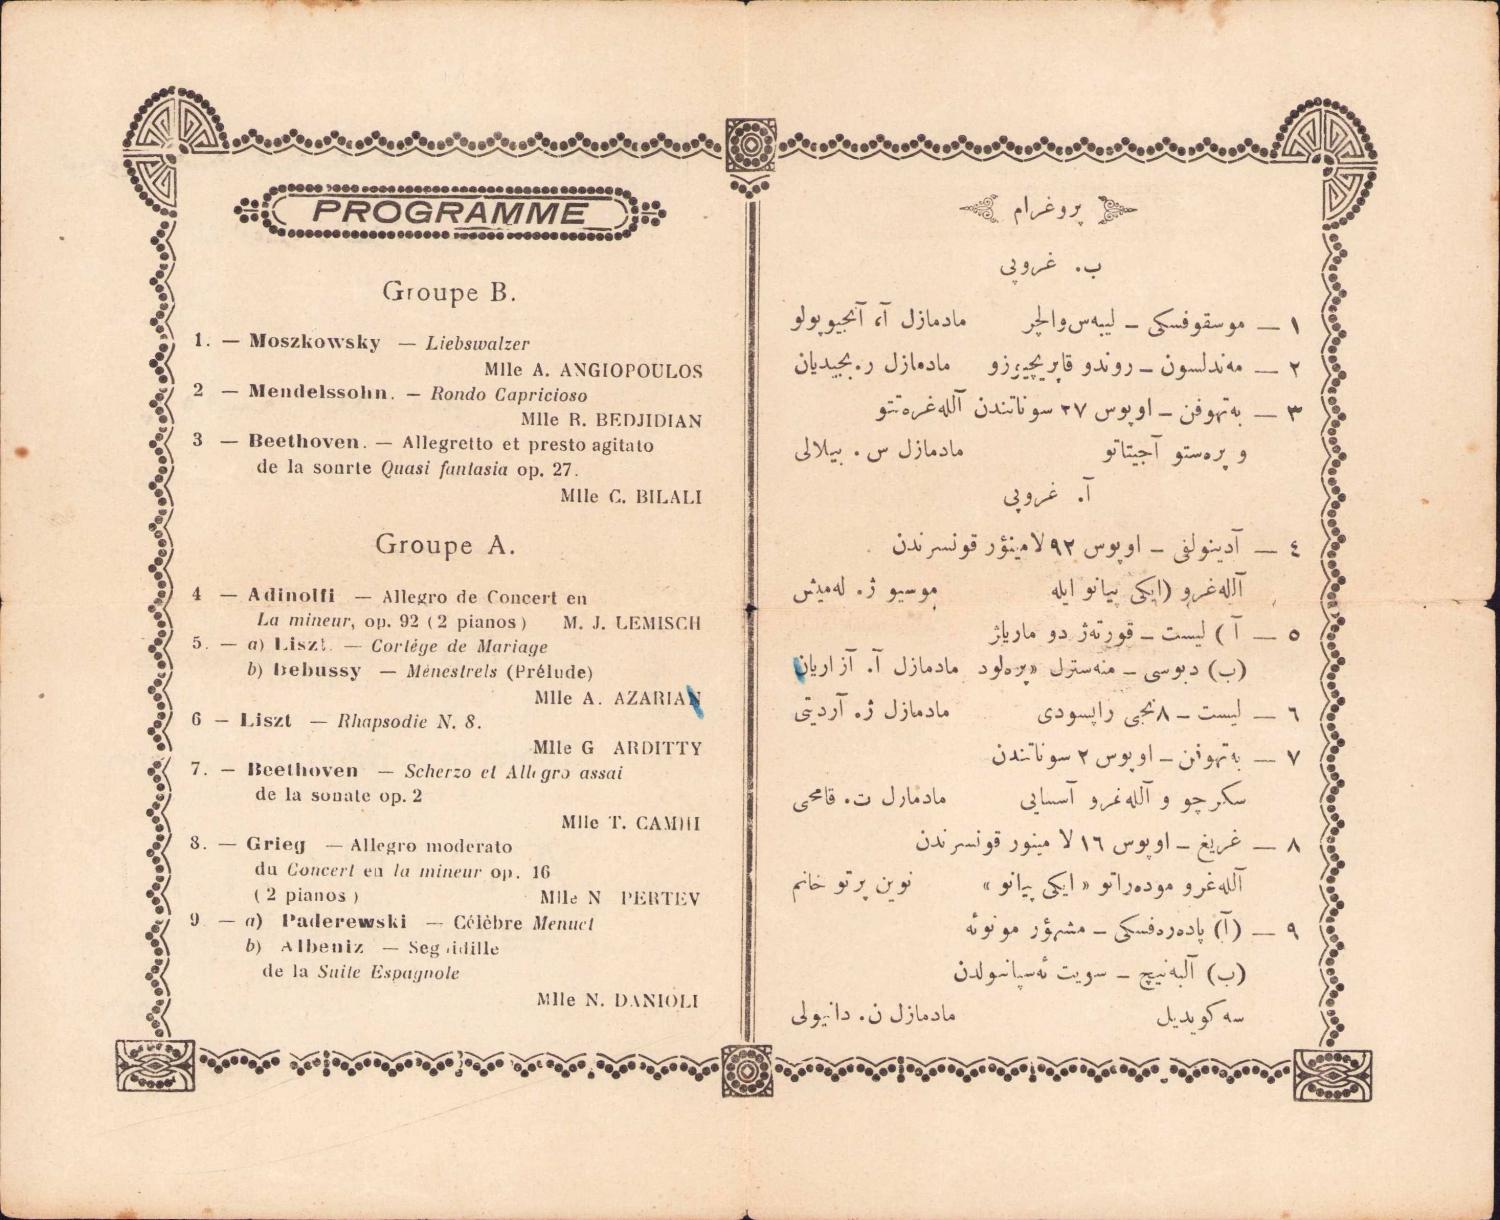 PROGRAMME
Groupe B.
1. — Moszkowsky — Liebswalzer
Mlle A. ANGIOPOULOS
2 — Mendelssohn. — Rondo Capricioso
Mlle R. BEDJIDIAN
3 — Beethoven. — Allegretto et presto agitato
de la sonrte Quasi fantasia op. 27.
Mlle C. BILALI
Groupe A.
4 — Adinolfi — Allegro de Concert en
La mineur, op. 92 (2 pianos) M. J. LEMISCH
5. — a) Liszt. — Cortége de Mariage
b) Debussy — Ménestrels (Prélude)
Mlle A. AZARIAN
6 — Liszt — Rhapsodie N. 8.
Mlle G ARDITTY
7. — Beethoven — Scherzo et Allegro assai
de la sonate op. 2
Mlle T. CAMHI
8. — Grieg — Allegro moderato
du Concert en la mineur op. 16
(2 pianos) Mlle N PERTEV
9 — a) Paderewski — Célèbre Menuet
b) Albeniz — Seguidille
de la Suite Espagnole
Mlle N. DANIOLI
پروغرام
ب. غروپی
١ — موسقوفسكی – ليبه‌س‌والچر مادمازل آ، آنجيوپولو
٢ — مه‌ندلسون – روندو قاپريچييزو مادمازل ر. بجيديان
٣ — به‌تهوفن – اوپوس ٢٧ سوناتندن آلله‌غره‌تتو
و پره‌ستو آجيتاتو مادمازل س. بيلالی
آ. غروپی
٤ — آدينولفی – اوپوس ٩٢ لامينؤر قونسرندن
آلله‌غرو (ايكی پيانو ايله موسيو ژ. له‌ميش
٥ — آ) ليست – قورته‌ژ دو مارياژ
(ب) دبوسی – منه‌سترل «پره‌لود مادمازل آ. آزاريان
٦ — ليست – ٨نجی راپسودی مادمازل ژ. آرديتی
٧ — به‌تهوفن – اوپوس ٢ سوناتندن
سكرچو و آلله‌غرو آسسايی مادمازل ت. قامحی
٨ — غريغ – اوپوس ١٦ لا مينور قونسرندن
آلله‌غرو موده‌راتو «ايكی پيانو» نوين پرتو خانم
٩ — (آ) پاده‌ره‌فسكی – مشهؤر مونوئه
(ب) آلبه‌نيچ – سويت ئه‌سپانيولدن
سه‌كويديل مادمازل ن. دانيولی